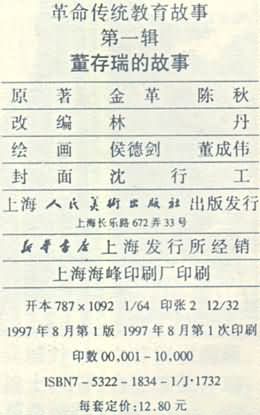 革命传统教育故事
第一辑
董存瑞的故事
原 著 金 革 陈 秋
改 编 林 丹
绘 画 侯德剑 董成伟
封 面 沈 行 工
上海人民美术出版社 出版发行
上海长乐路 672 弄 33 号
新华书店 上海发行所经销
上海海峰印刷厂印刷
开本 787×1092 1/64 印张 2 12/32
1997 年 8 月第 1 版 1997 年 8 月第 1 次印刷
印数 00,001-10,000
ISBN7-5322-1834-1/J·1732
每套定价:12.80 元